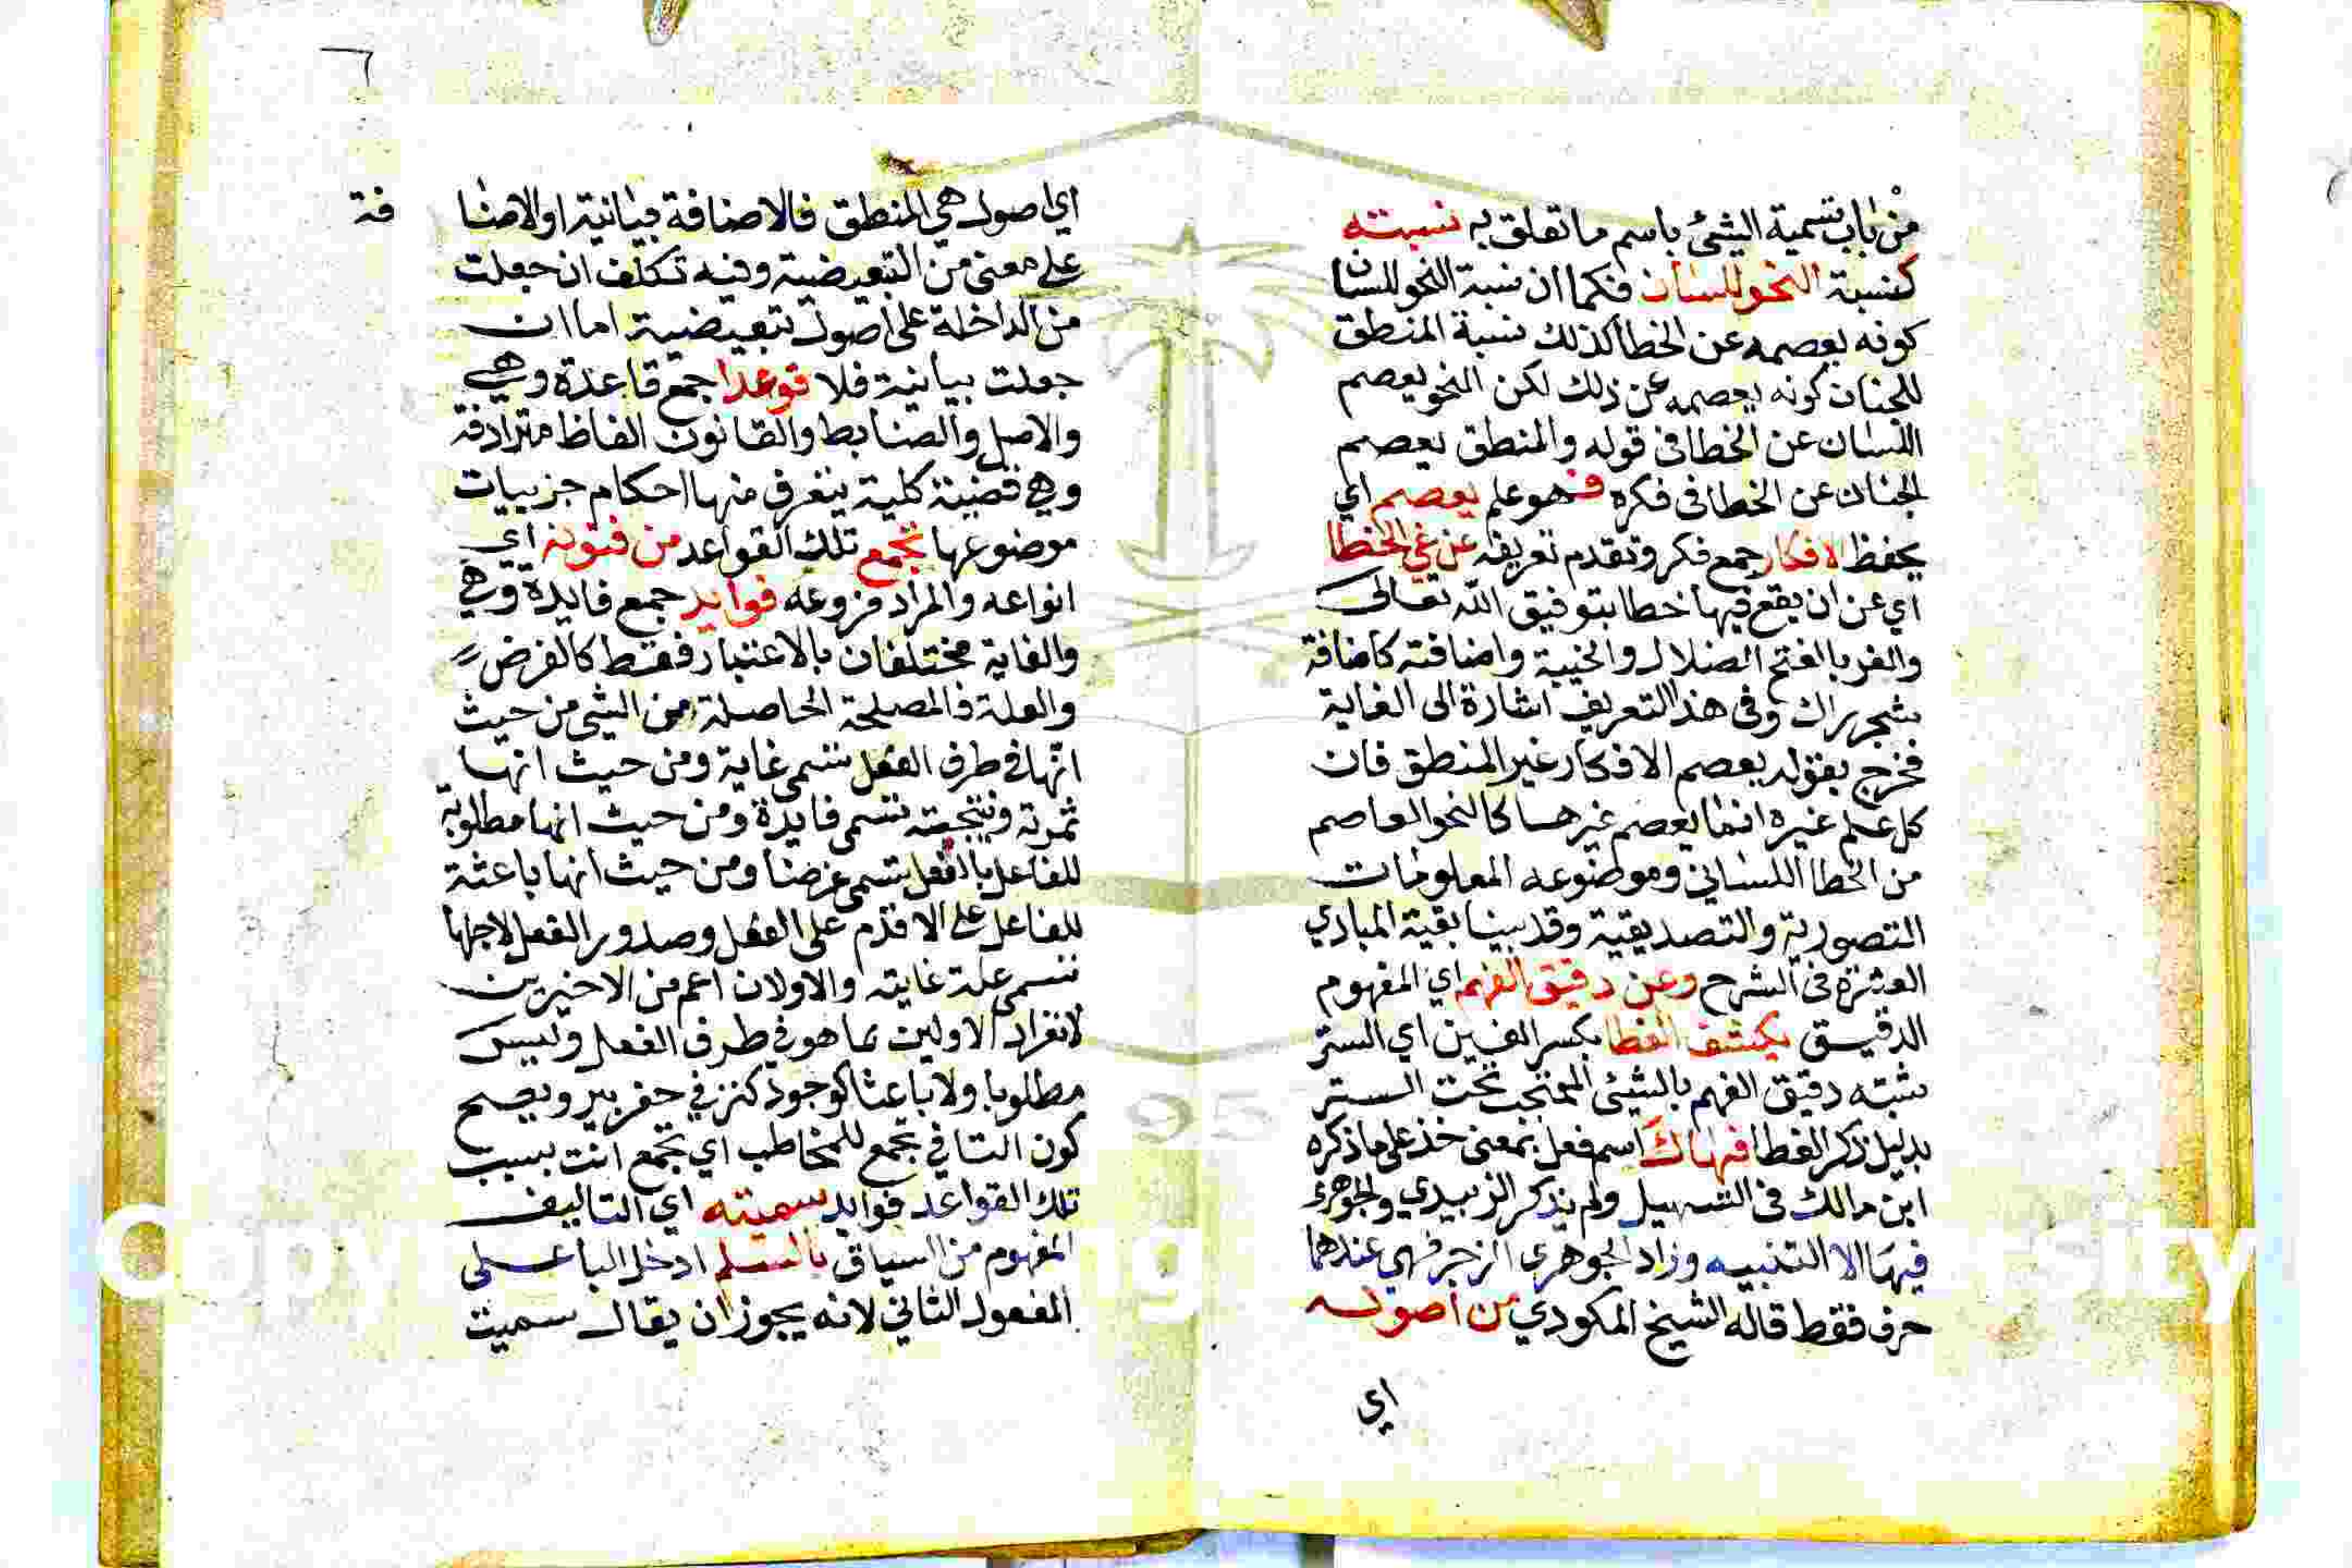 من باب تسمية الشئ باسم ما تعلق به نسبته
كنسبة النحو للسان فكما ان نسبة النحو للسان
كونه يعصمه عن الخطا كذلك نسبة المنطق
للجنان كونه يعصمه عن ذلك لكن النحو يعصم
اللسان عن الخطا في قوله والمنطق يعصم
الجنان عن الخطا في فكره فهو علم يعصم اي
يحفظ الافكار جمع فكر وتقدم تعريفه عن غي الخطا
اي عن ان يقع فيها خطا بتوفيق الله تعالى
والغي بالفتح الضلال والخيبة واضافته كاضافة
شجر اراك وفي هذا التعريف اشارة الى الغاية
فخرج بقوله يعصم الافكار غير المنطق فان
كل علم غيره انما يعصم غيرها كالنحو العاصم
من الخطا اللساني وموضوعه المعلومات
التصورية والتصديقية وقد بينا بقية المبادي
العشرة في الشرح وعن دقيق الفهم اي المفهوم
الدقيق يكشف الغطا بكسر الغين اي الستر
شبه دقيق الفهم بالشئ المحتجب تحت الستر
بدليل ذكر الغطا فهاك اسم فعل بمعنى خذ على ما ذكره
ابن مالك في التسهيل ولم يذكر الزبيدي والجوهري
فيها الا التنبيه وزاد الجوهري الزجر فهي عندهما
حرف فقط قاله الشيخ المكودي من اصوله
اي
٦
اي اصول هي المنطق فالاضافة بيانية او الاضا فة
على معنى من التبعيضية وفيه تكلف ان جعلت
من الداخلة على اصول تبعيضية اما ان
جعلت بيانية فلا قوعدا جمع قاعدة وهي
والاصل والضابط والقانون الفاظ مترادفة
وهي قضية كلية يتعرف منها احكام جزييات
موضوعها تجمع تلك القواعد من فنونه اي
انواعه والمراد فروعه فوايد جمع فايدة وهي
والغاية مختلفان بالاعتبار فقط كالغرض
والعلة فالمصلحة الحاصلة من الشئ من حيث
انها في طرف الفعل تسمى غاية ومن حيث انها
ثمرته ونتيجته تسمى فايدة ومن حيث انها مطلوبة
للفاعل بالفعل تسمى غرضا ومن حيث انها باعثة
للفاعل على الاقدم على الفعل وصدور الفعل لاجلها
تسمى علة غايته والاولان اعم من الاخيرين
لانفراد الاولين بما هو في طرف الفعل وليس
مطلوبا ولا باعثا كوجود كنز في حفر بير ويصح
كون التا في تجمع للمخاطب اي تجمع انت بسبب
تلك القواعد فوايد سميته اي التاليف
المفهوم من السياق بالسلم ادخل البا على
المفعول الثاني لانه يجوز ان يقال سميت